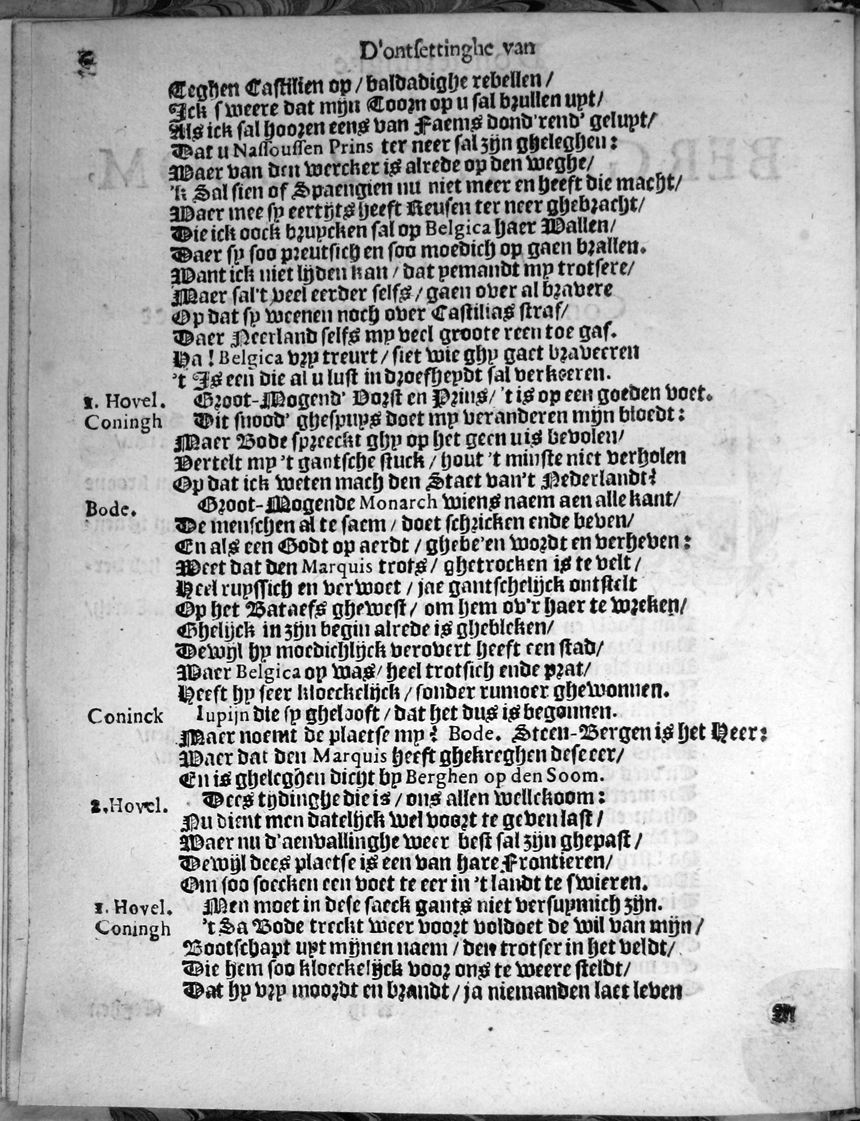 D'ontsettinghe van
Teghen Castilien op / baldadighe rebellen /
Ick sweere dat mijn Toorn op u sal brullen uyt /
Als ick sal hooren eens van Faems dond'rend' geluyt /
Dat u Nassoussen Prins ter neer sal zijn gheleghen:
Maer van den wercker is alrede op den weghe /
'k Sal sien of Spaengien nu niet meer en heeft die macht /
Waer mee sy eertijts heeft Reusen ter neer ghebracht /
Die ick oock bruycken sal op Belgica haer Wallen /
Daer sy soo preutsich en soo moedich op gaen brallen.
Want ick niet lijden kan / dat yemandt my trotsere /
Maer sal't veel eerder selfs / gaen over al bravere
Op dat sy weenen noch over Castilias straf /
Daer Neerland selfs my veel groote reen toe gaf.
Ha! Belgica vry treurt / siet wie ghy gaet braveeren
't Is een die al u lust in droefheydt sal verkeeren.
1. Hovel. Groot-Mogend' Vorst en Prins / 't is op een goeden voet.
Coningh Dit snood' ghespuys doet my veranderen mijn bloedt:
Maer Bode spreeckt ghy op het geen u is bevolen /
Vertelt my 't gantsche stuck / hout 't minste niet verholen
Op dat ick weten mach den Staet van't Nederlandt?
Bode. Groot-Mogende Monarch wiens naem aen alle kant /
De menschen al te saem / doet schricken ende beven /
En als een Godt op aerdt / ghebe'en wordt en verheven:
Weet dat den Marquis trots / ghetrocken is te velt /
Heel ruyssich en verwoet / jae gantschelijck ontstelt
Op het Bataefs ghewest / om hem ov'r haer te wreken /
Ghelijck in zijn begin alrede is ghebleken /
Dewijl hy moedichlijck verovert heeft een stad /
Waer Belgica op was / heel trotsich ende prat /
Heeft hy seer kloeckelijck / sonder rumoer ghewonnen.
Coninck Iupijn die sy ghelooft / dat het dus is begonnen.
Maer noemt de plaetse my? Bode. Steen-Bergen is het Heer:
Waer dat den Marquis heeft ghekreghen dese eer /
En is gheleghen dicht by Berghen op den Soom.
2. Hovel. Dees tydinghe die is / ons allen wellekoom:
Nu dient men datelijck wel voort te geven last /
Waer nu d'aenvallinghe weer best sal zijn ghepast /
Dewijl dees plaetse is een van hare Frontieren /
Om soo soecken een voet te eer in 't landt te swieren.
1. Hovel. Men moet in dese saeck gants niet versuymich zijn.
Coningh 't Sa Bode treckt weer voort voldoet de wil van mijn /
Bootschapt uyt mijnen naem / den trotser in het veldt /
Die hem soo kloeckelijck voor ons te weere steldt /
Dat hy vry moordt en brandt / ja niemanden laet leven